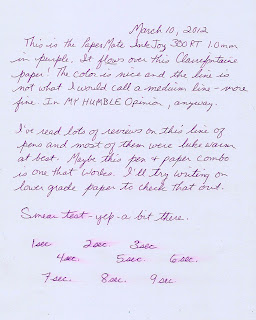 March 10, 2012
This is the PaperMate InkJoy 300RT 1.0mm
in purple. It flows over this Clairefontaine
paper! The color is nice and the line is
not what I would call a medium line - more
fine. In MY HUMBLE Opinion, anyway.
I've read lots of reviews on this line of
pens and most of them were luke warm
at best. Maybe this pen & paper combo
is one that works. I'll try writing on
lower grade paper to check that out.
Smear test - yep - a bit there.
1sec 2sec. 3sec
4sec. 5sec. 6sec.
7sec. 8sec. 9sec.